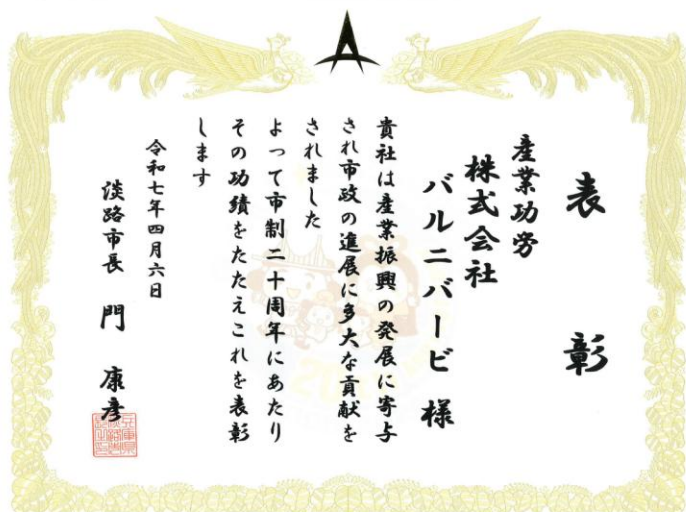 表彰
産業功労
株式会社
バルニバービ 様
貴社は産業振興の発展に寄与
され市政の進展に多大な貢献を
されました
よって市制二十周年にあたり
その功績をたたえこれを表彰
します
令和七年四月六日
淡路市長 門 康彦